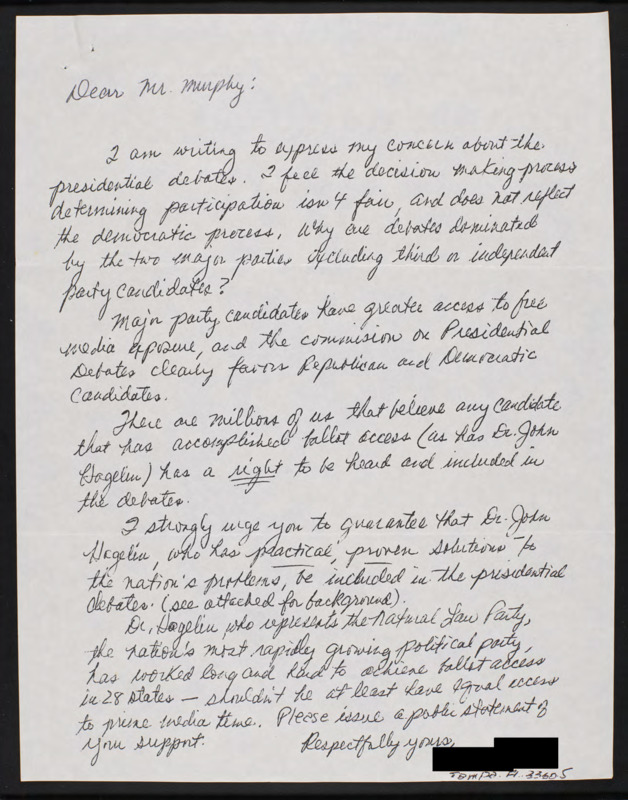 Dear Mr. Murphy:
I am writing to express my concern about the
presidential debates. I feel the decision making process
determining participation isn't fair, and does not reflect
the democratic process. Why are debates dominated
by the two major parties excluding third or independent
party candidates?
Major party candidates have greater access to free
media exposure, and the commision on Presidential
Debates clearly favors Republican and Democratic
candidates.
There are millions of us that believe any candidate
that has accomplished ballot access (as has Dr. John
Hagelin) has a right to be heard and included in
the debates.
I strongly urge you to guarantee that Dr. John
Hagelin, who has practical, proven solutions to
the nation's problems, be included in the presidential
debates. (see attached for background).
Dr. Hagelin who represents the Natural Law Party,
the nation's most rapidly growing political party,
has worked long and hard to achieve ballot access
in 28 states — shouldn't he at least have equal access
to prime media time. Please issue a public statement of
your support.
Respectfully yours,
Tampa, Fl. 33605